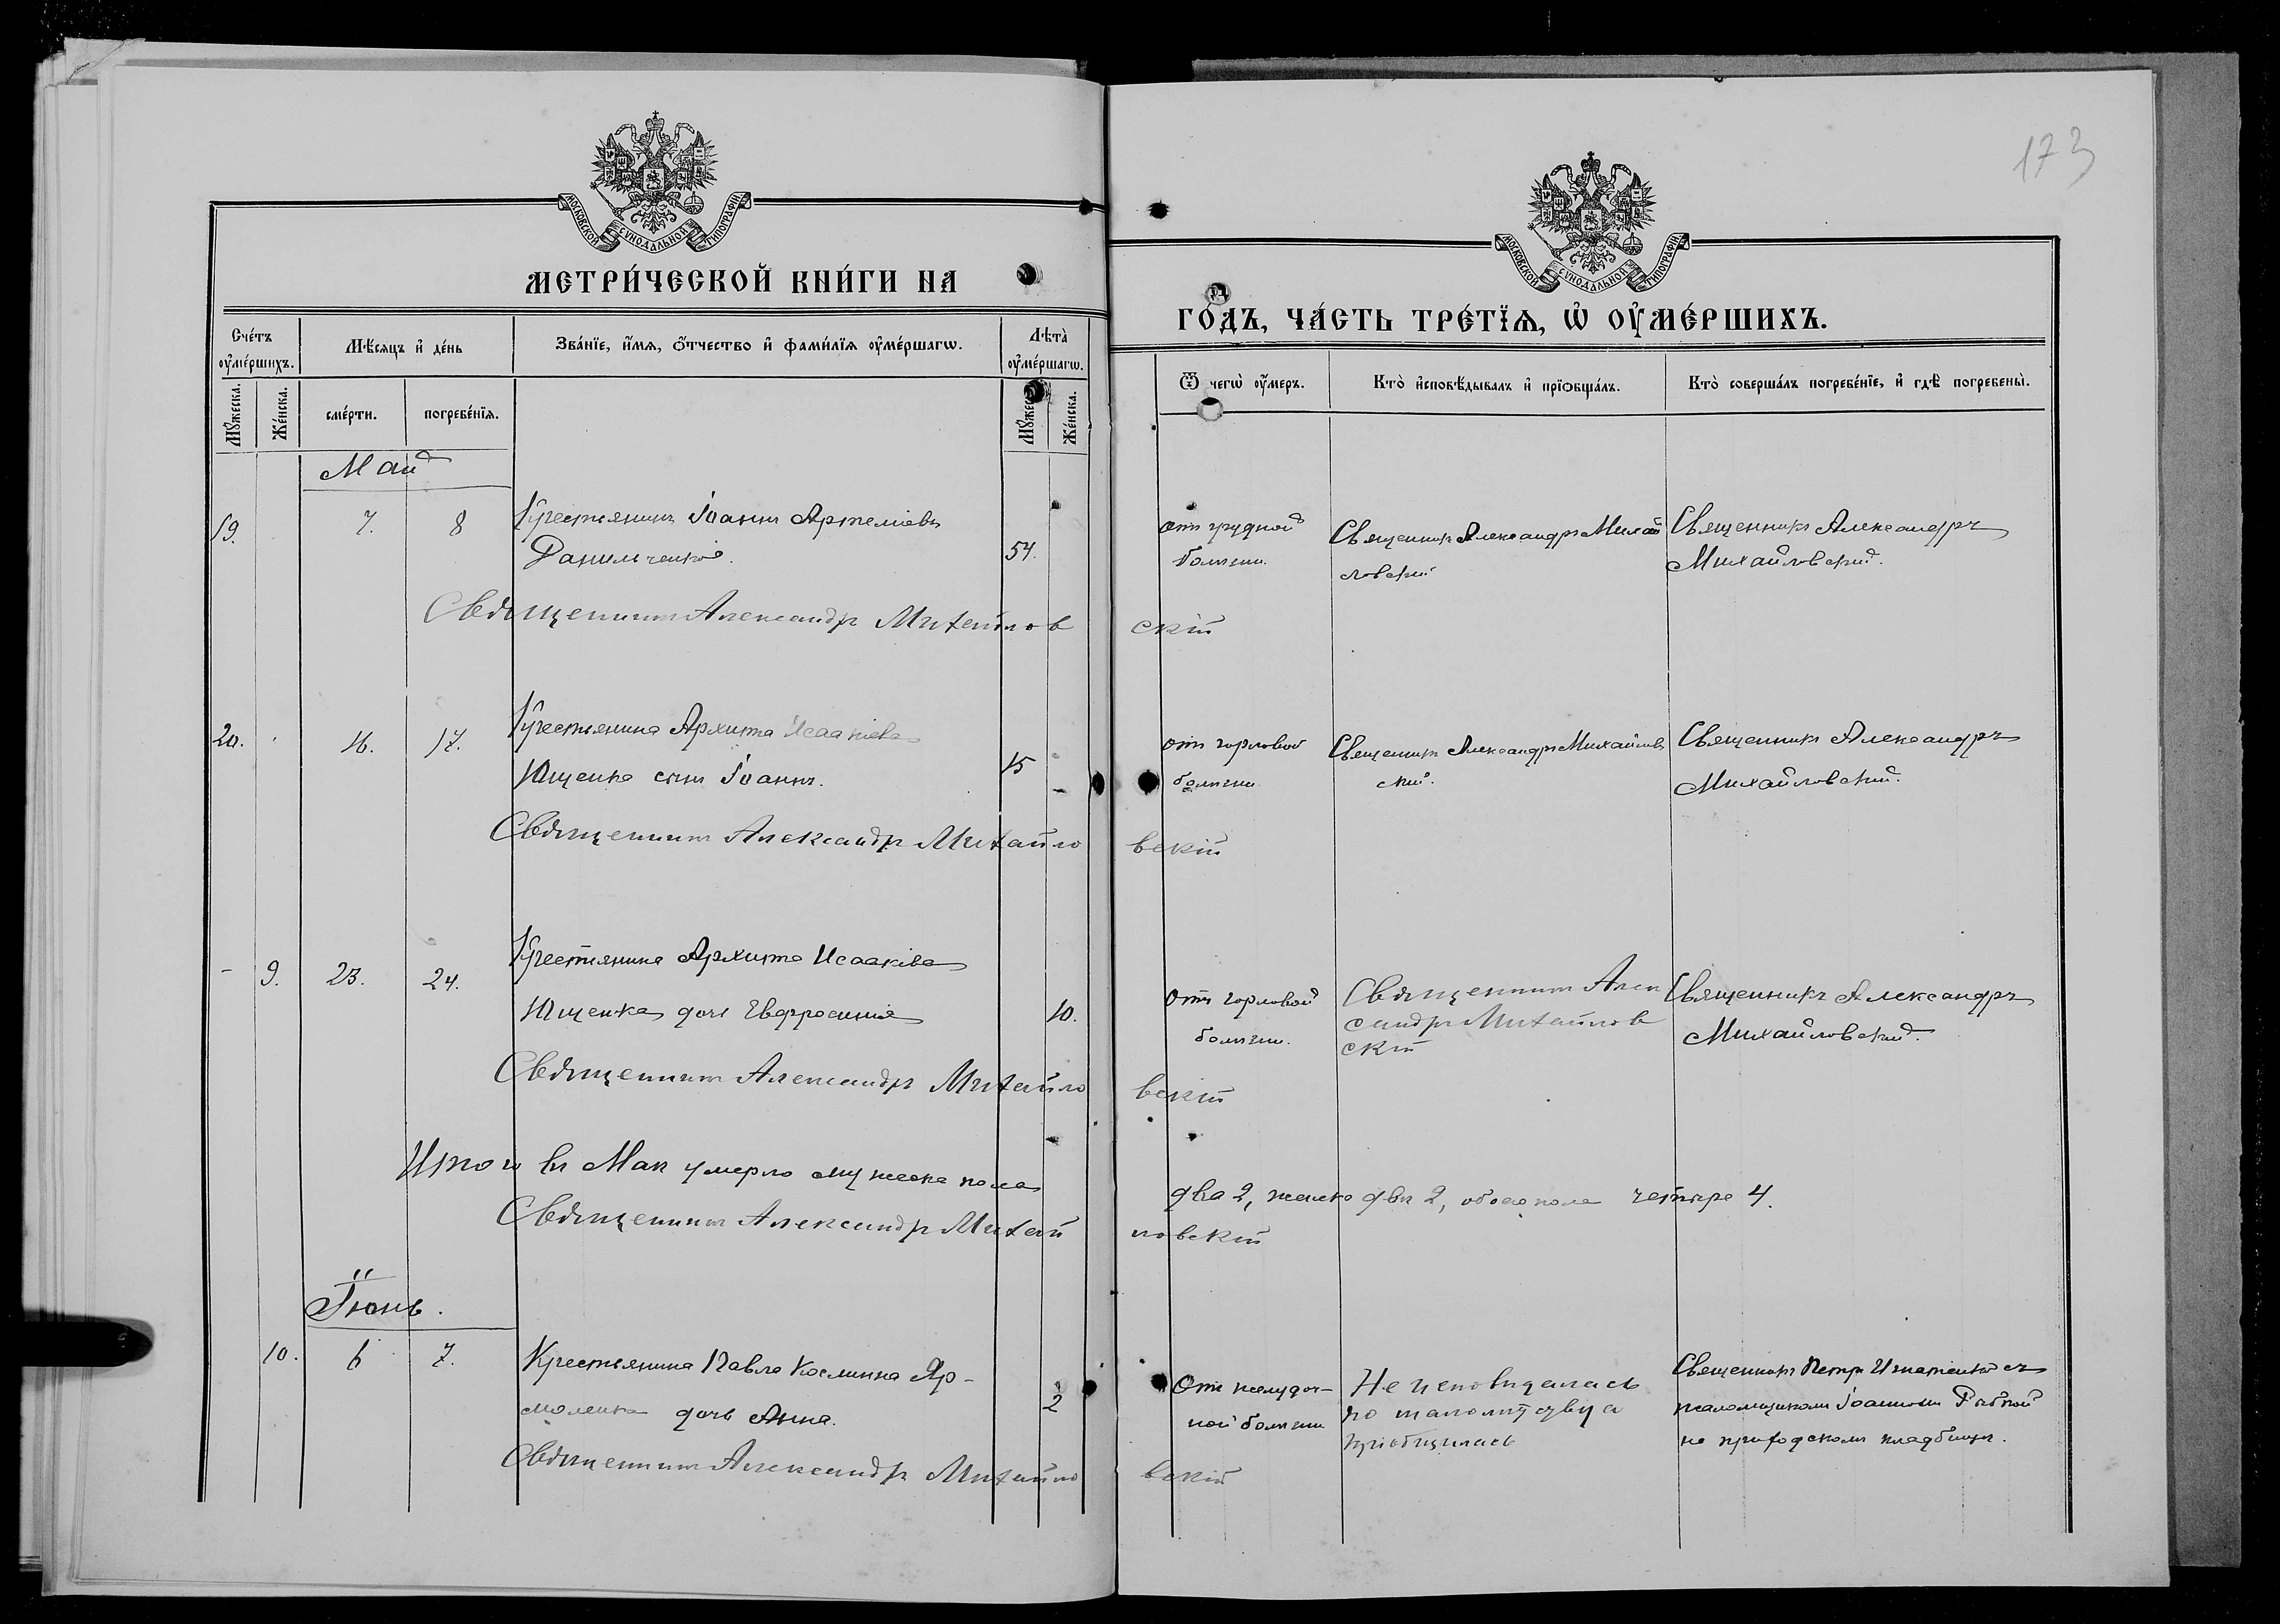 173
МОСКОВСКОЙ СѴНОДАЛЬНОЙ ТИПОГРАФІИ
МОСКОВСКОЙ СѴНОДАЛЬНОЙ ТИПОГРАФІИ
МЕТРИ́ЧЕСКОЙ КНИ́ГИ НА
ГО́ДЪ, ЧА́СТЬ ТРЕ́ТІѦ, Ѡ҆ ОУ҆МЕ́РШИХЪ.
Сче́тъ оу҆ме́ршихъ.
Мѣ́сяцъ и҆ де́нь
Зва́нїе, и҆́мѧ, ѻ҆́тчество и҆ фами́лїѧ оу҆ме́ршагѡ.
Лѣ́та̀ оу҆ме́ршагѡ.
Ѿ чегѡ̀ оу҆́меръ.
Кто̀ и҆сповѣ́дывалъ и҆ прїѻбща́лъ.
Кто̀ соверша́лъ погребе́нїе, и҆ гдѣ̀ погребены̀.
Мꙋ́жеска.
Же́нска.
сме́рти.
погребе́нїѧ.
Мꙋ́жес
Же́нска.
Май
19. 7. 8 Крестьянинъ Іоаннъ Артеміевъ
Данильченко. 54.
отъ грудной
болѣзни.
Священникъ Александръ Михай
ловскій
Священникъ Александръ
Михайловскій.
Священникъ Александръ Михайлов
скій
20. 16. 17. Крестьянина Архипа Исаакіева
Ющенка сынъ Іоаннъ. 15
отъ горловой
болѣзни.
Священникъ Александръ Михайлов
скій.
Священникъ Александръ
Михайловскій.
Священникъ Александръ Михайло
вскій
- 9. 23. 24. Крестьянина Архипа Исаакіева
Ющенка дочь Евфросинія 10.
Отъ горловой
болѣзни.
Священникъ Алек
сандръ Михайлов
скій
Священникъ Александръ
Михайловскій.
Священникъ Александръ Михайло
вскій
Итого въ Маѣ умерло мужеска пола
два 2, женска двѣ 2, обоего пола четыре 4.
Священникъ Александръ Михай
ловскій
Іюнь.
10. 6 7. Крестьянина Павла Космина Яр-
моленка дочь Анна. 2
Отъ желудоч-
ной болѣзни
Не исповѣдалась
по малолѣтству а
пріобщилась
Священникъ Петръ Игнатенко съ
псаломщикомъ Іоанномъ
на приходскомъ кладбищѣ.
Священникъ Александръ Михайло
вскій